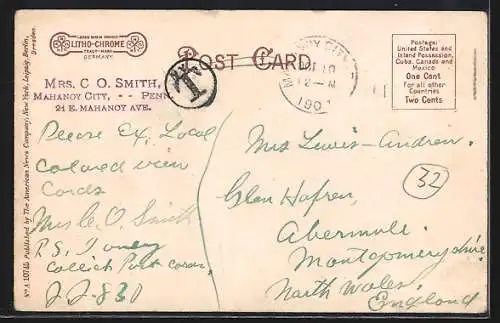 LITHO-CHROME
TRADE-MARK
GERMANY
POST CARD
Postage:
United States and
Island Possession,
Cuba, Canada and
Mexico
One Cent
For all other
Countries
Two Cents
T
MAHANOY CITY
10
12-M
190
MRS. C O. SMITH,
MAHANOY CITY, - - PENN
21 E. MAHANOY AVE.
Please Ex, Local
colored view
Cards
Mrs C. O. Smith
P.S. I only
Collect Post cards.
J.J-830
Mrs Lewis-Andrew.
Glen Hafren,
Abermule.
Montgomeryshire
North Wales.
England
32
No. A 10745 Published by The American News Company, New York, Leipzig, Berlin,
Dresden